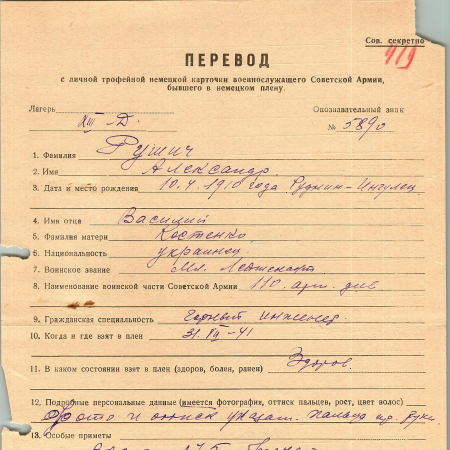 Сов. секретно
ПЕРЕВОД
с личной трофейной немецкой карточки военнослужащего Советской Армии,
бывшего в немецком плену.
Лагерь XIII-Д. Опознавательный знак
№ 5890
1. Фамилия Рушич
2. Имя Александр
3. Дата и место рождения 10.4.1910 года Рудник-Ингулец
4. Имя отца Василий
5. Фамилия матери Костенко
6. Национальность украинец
7. Воинское звание Мл. Лейтенант
8. Наименование воинской части Советской Армии 110 арт. див
9. Гражданская специальность Горный инженер
10. Когда и где взят в плен 31.VII-41
11. В каком состоянии взят в плен (здоров, болен, ранен) Здоров
12. Подробные персональные данные (имеется фотография, оттиск пальцев, рост, цвет волос)
Фото и оттиск указат. пальца пр. руки
13. Особые приметы